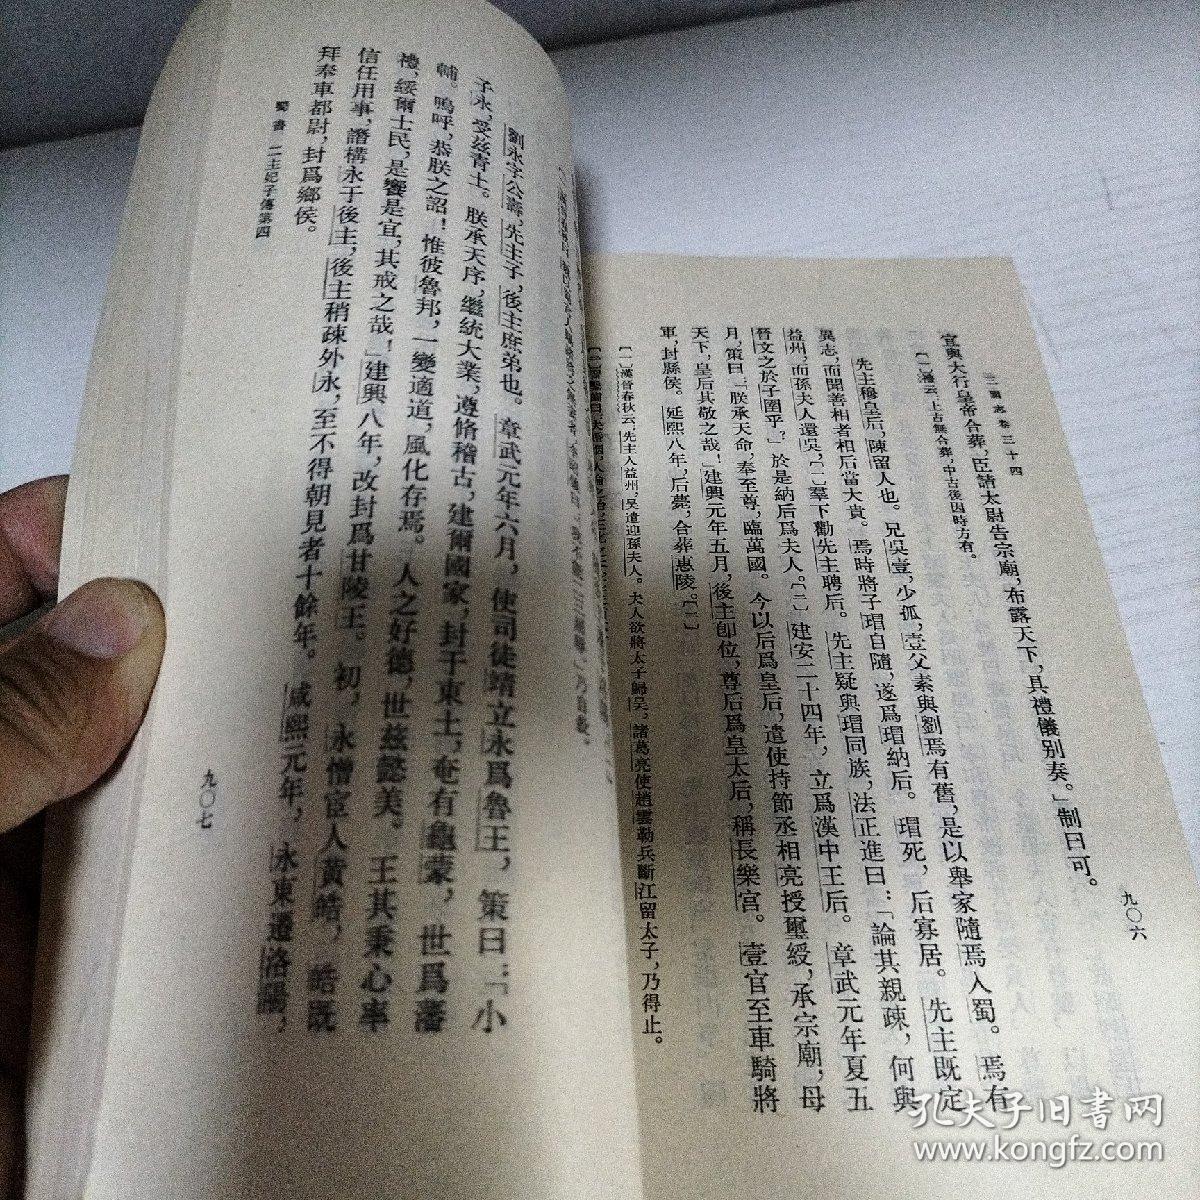 三國志卷三十四
九〇六
宜與大行皇帝合葬，臣請太尉告宗廟，布露天下，具禮儀別奏。」制曰可。
〔一〕禮云：上古無合葬，中古後因時方有。
先主穆皇后，陳留人也。兄吳壹，少孤，壹父素與劉焉有舊，是以舉家隨焉入蜀。焉有
異志，而聞善相者相后當大貴。焉時將子瑁自隨，遂爲瑁納后。瑁死，后寡居。先主既定
益州，而孫夫人還吳，〔一〕羣下勸先主聘后。先主疑與瑁同族，法正進曰：「論其親疎，何與
晉文之於子圉乎？」於是納后爲夫人。〔二〕建安二十四年，立爲漢中王后。章武元年夏五
月，策曰：「朕承天命，奉至尊，臨萬國。今以后爲皇后，遣使持節丞相亮授璽綬，承宗廟，母
天下，皇后其敬之哉！」建興元年五月，後主卽位，尊后爲皇太后，稱長樂宮。壹官至車騎將
軍，封縣侯。延熙八年，后薨，合葬惠陵。〔三〕
〔一〕漢晉春秋云：先主入益州，吳遣迎孫夫人。夫人欲將太子歸吳，諸葛亮使趙雲勒兵斷江留太子，乃得止。
劉永字公壽，先主子，後主庶弟也。章武元年六月，使司徒靖立永爲魯王，策曰：「小
子永，受茲青土。朕承天序，繼統大業，遵脩稽古，建爾國家，封于東土，奄有龜蒙，世爲藩
輔。嗚呼，恭朕之詔！惟彼魯邦，一變適道，風化存焉。人之好德，世茲懿美。王其秉心率
禮，綏爾士民，是饗是宜，其戒之哉！」建興八年，改封爲甘陵王。初，永憎宦人黃皓，皓既
信任用事，譖構永于後主，後主稍疎外永，至不得朝見者十餘年。咸熙元年，永東遷洛陽，
拜奉車都尉，封爲鄉侯。
蜀書 二主妃子傳第四
九〇七
孔夫子旧書网
www.kongfz.com